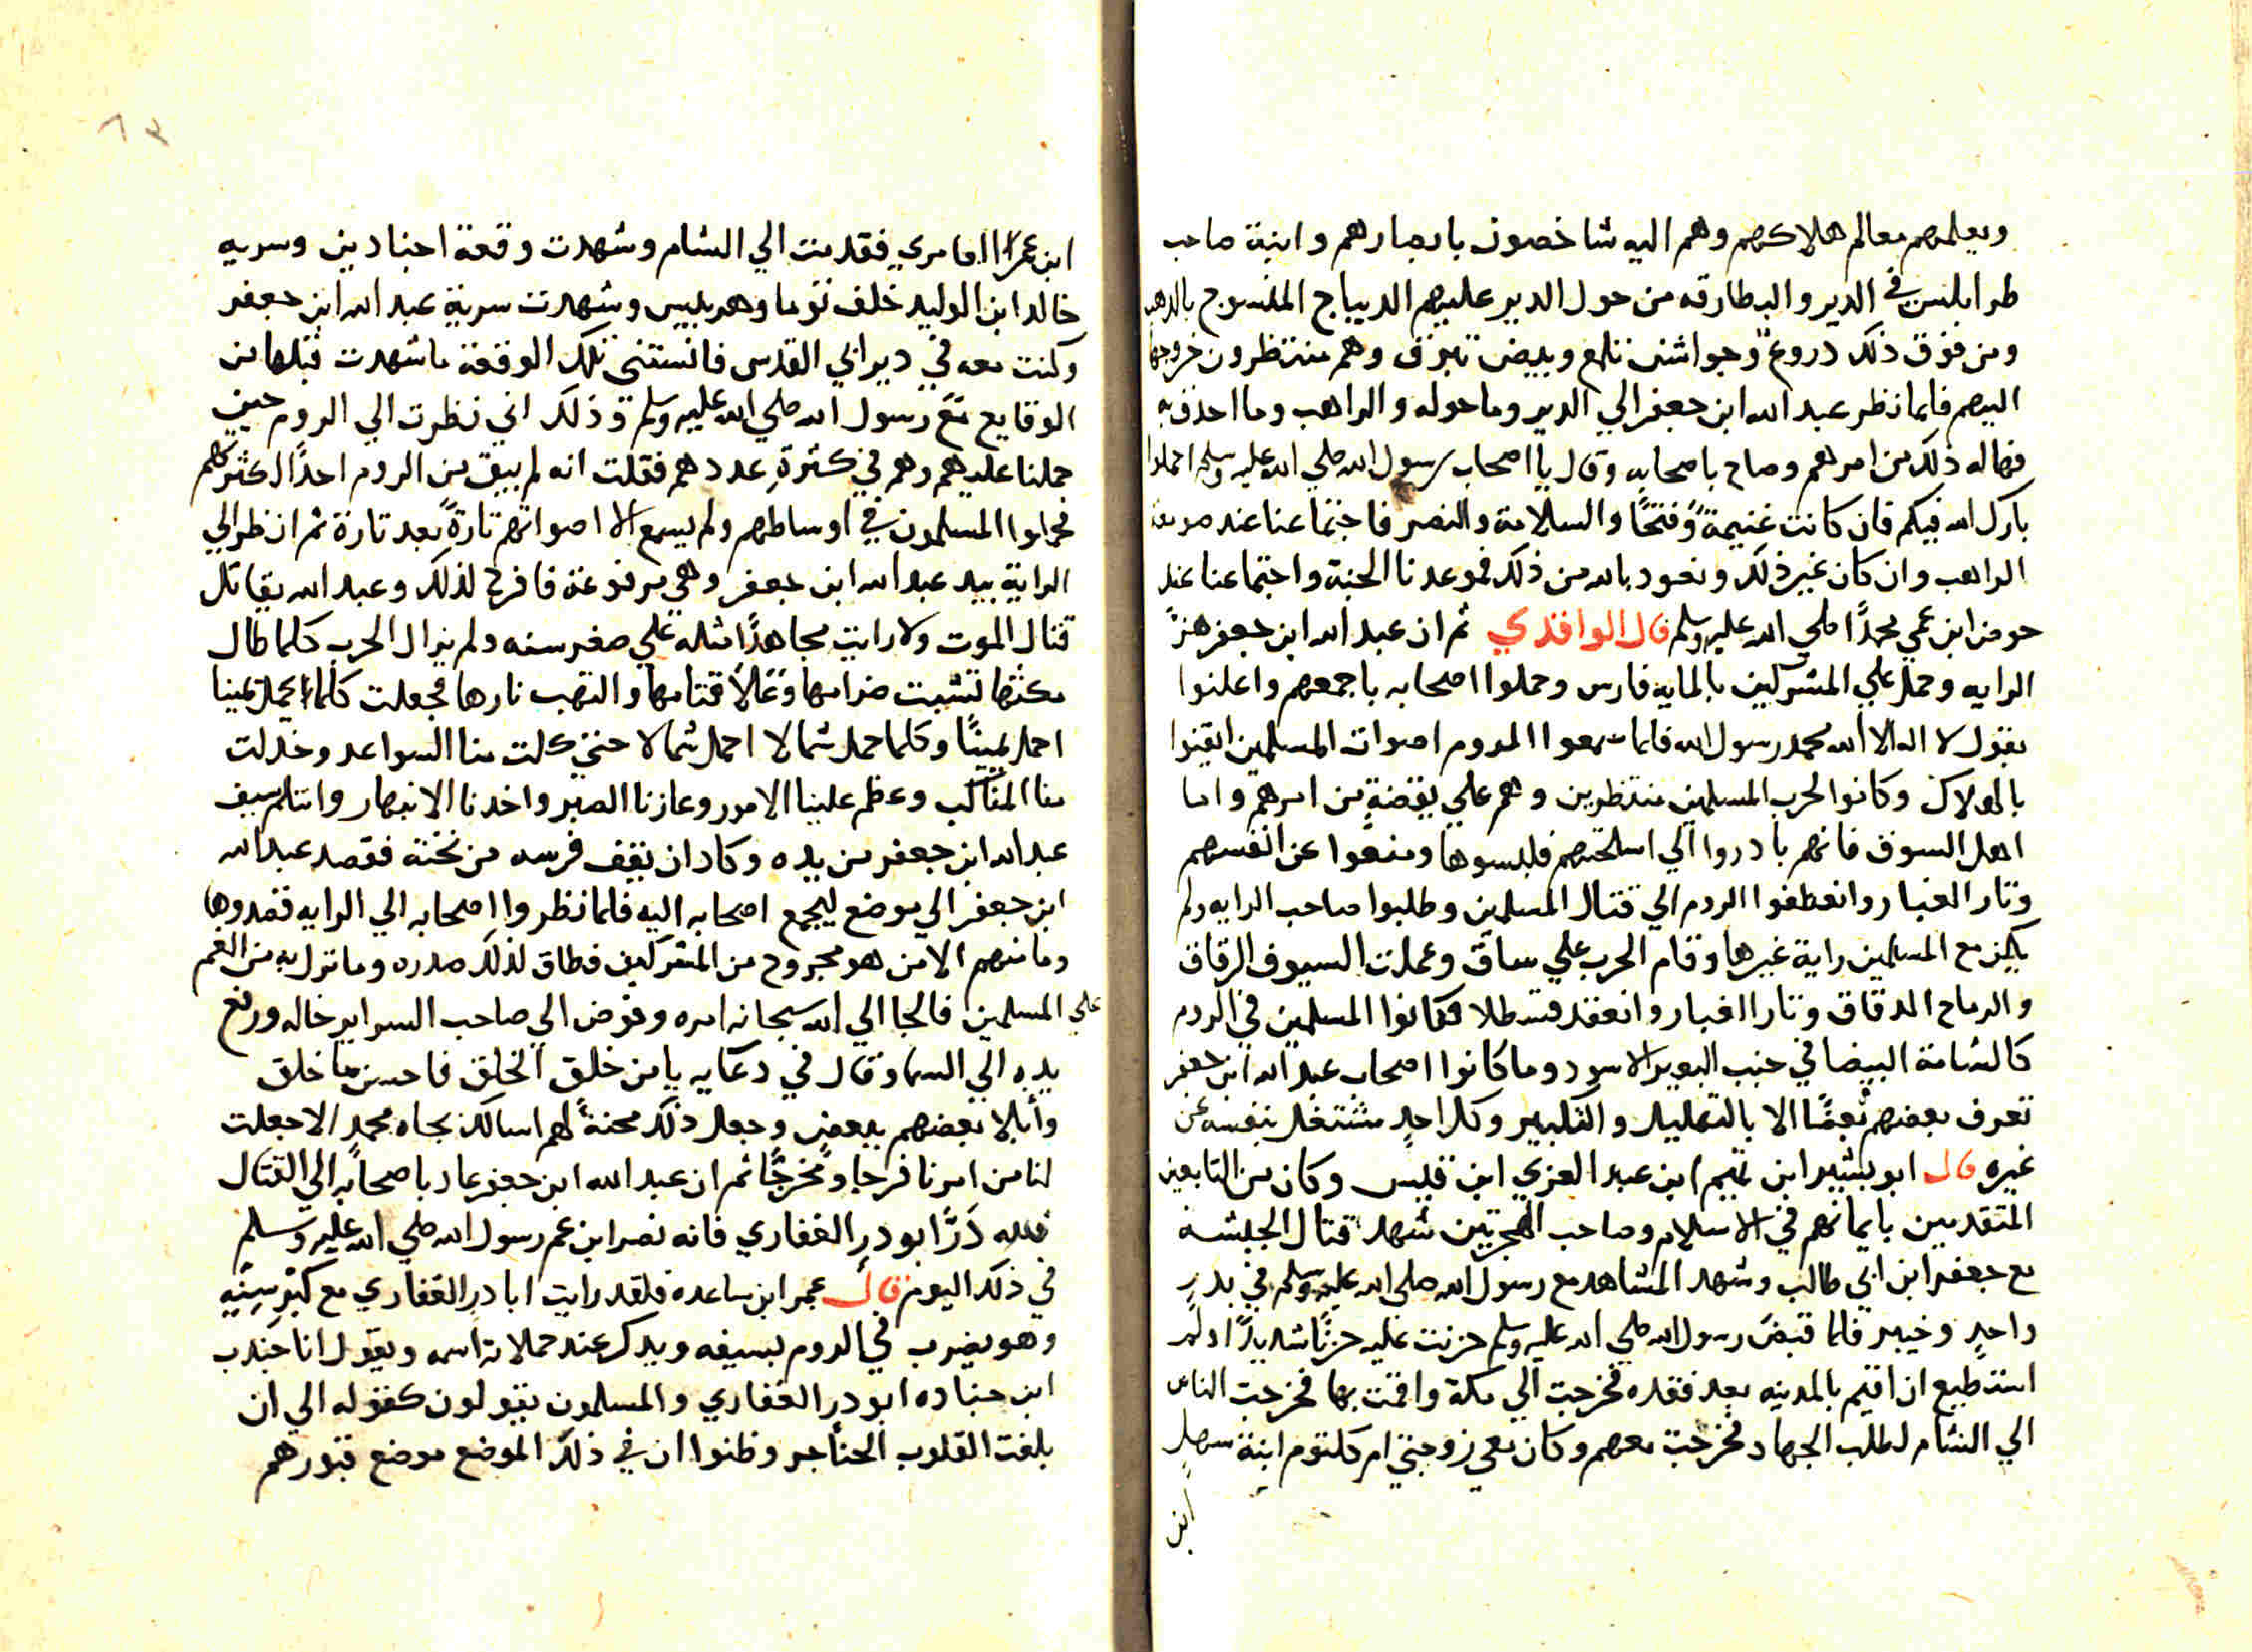 ويعلمهم معالم هلاكهم وهم اليه شاخصون بابصارهم وابنة صاحب
طرابلس في الدير والبطارقه من حول الدير عليهم الديباج المنسوج بالدهب
ومن فوق ذلك دروعٌ وجواشن تلمع وبيض تبرق وهم منتظرون خروجها
اليهم فلما نظر عبد الله ابن جعفر الي الدير وما حوله والراهب وما احدق به
فهاله ذلك من امرهم وصاح باصحابه وقال يا اصحاب رسول الله صلي الله عليه وسلم احملوا
بارك الله فيكم فان كانت غنيمةً وفتحًا والسلامة والنصر فاجتماعنا عند صومعة
الراهب وان كان غير ذلك ونعود بالله من ذلك فموعدنا الجنة واجتماعنا عند
حوض ابن عمي محمدًا صلي الله عليه وسلم قال الواقدي ثم ان عبد الله ابن جعفر هز
الرايه وحمل علي المشركين بالمايه فارس وحملوا اصحابه باجمعهم واعلنوا
بقول لا اله الا الله محمد رسول الله فلما سمعوا الروم اصوات المسلمين ايقنوا
بالهلاك وكانوا لحرب المسلمين منتظرين وهم علي يقضةٍ من امرهم واما
اهل السوق فانهم بادروا الي اسلحتهم فلبسوها ومنعوا عن انفسهم
وتار الغبار وانعطفوا الروم الي قتال المسلمين وطلبوا صاحب الرايه ولم
يكن مع المسلمين راية غيرها وقام الحرب علي ساق وعملت السيوف الرقاق
والرماح الدقاق وتار الغبار وانعقد قسطلا فكانوا المسلمين في الروم
كالشامة البيضا في جنب البعير الاسود وما كانوا اصحاب عبد الله ابن جعفر
تعرف بعضهم بعضًا الا بالتهليل والتكبير وكل احدٍ مشتغل بنفسه عن
غيره قال ابو بشير ابن تميم ابن عبد العزي ابن قيس وكان من التابعين
المتقدمين بايمانهم في الاسلام وصاحب الهجرتين شهد قتال الحبشة
مع جعفر ابن ابي طالب وشهد المشاهد مع رسول الله صلي الله عليه وسلم في بدرٍ
واحدٍ وخيبر فلما قبضَ رسول الله صلي الله عليه وسلم حزنت عليه حزنًا شديدًا ولم
استطيع ان اقيم بالمدينه بعد فقده فخرجت الي مكة واقمت بها فخرجت الناس
الي الشام لطلب الجهاد فخرجت معهم وكان معي زوجتي ام كلتوم ابنة سهلٍ
ابن
ابن عمر العامري فقدمت الي الشام وشهدت وقعة اجنادين وسريه
خالد ابن الوليد خلف توما وهربيس وشهدت سرية عبد الله ابن جعفر
وكنت معه في دير ابي القدس فانستني تلك الوقعة ما شهدت قبلها من
الوقايع مع رسول الله صلي الله عليه وسلم وذلك اني نظرت الي الروم حين
حملنا عليهم وهم في كثرةِ عددهم فقلت انه لم يبق من الروم احدًا لكثرتهم
فحملوا المسلمون في اوساطهم ولم يسمع الا اصواتهم تارةً بعد تارة ثم انظر الي
الراية بيد عبد الله ابن جعفر وهي مرفوعة فافرح لذلك وعبد الله يقاتل
قتال الموت ولا رايت مجاهدًا مثله علي صغر سنه ولم يزال الحرب كلما طال
مكثها تشبت ضرامها وعَلا قتامها والتهب نارها فجعلت كلما يحمل يمينا
احمل يمينًا وكلما حمل شمالا احمل شمالا حتي كلت منا السواعد وخدلت
منا المناكب وعظم علينا الامور وعازنا الصبر واخدنا الانبهار وانتلم سيف
عبد الله ابن جعفر من يده وكاد ان يقف فرسه من تحته فقصد عبد الله
ابن جعفر الي موضع ليجمع اصحابه اليه فلما نظروا اصحابه الي الرايه قصدوها
وما منهم الا من هو مجروح من المشركين فضاق لذلك صدره وما نزل به من الغم
علي المسلمين فالجا الي الله سبحانه امره وفوض الي صاحب السراير حاله ورفع
يده الي السما وقال في دعايه يا من خلق الخلق فاحسن ما خلق
وأبلا بعضهم ببعض وجعل ذلك محنةً لهم اسالك بجاه محمدٍ الا جعلت
لنا من امرنا فرجا ومخرجًا ثم ان عبد الله ابن جعفر عاد باصحابه الي القتال
فلله دَرًّ ابو درِ الغفاري فانه نصر ابن عم رسول الله صلي الله عليه وسلم
في ذلك اليوم قال عمر ابن ساعده فلقد رايت ابا درِ الغفاري مع كبرِ سنِّه
وهو يضرب في الروم بسيفه ويدكر عند حملاته اسمه ويقول انا جندب
ابن جناده ابو درِ الغفاري والمسلمون يقولون كقوله الي ان
بلغت القلوب الحناجر وظنوا ان في ذلك الموضع موضع قبورهم